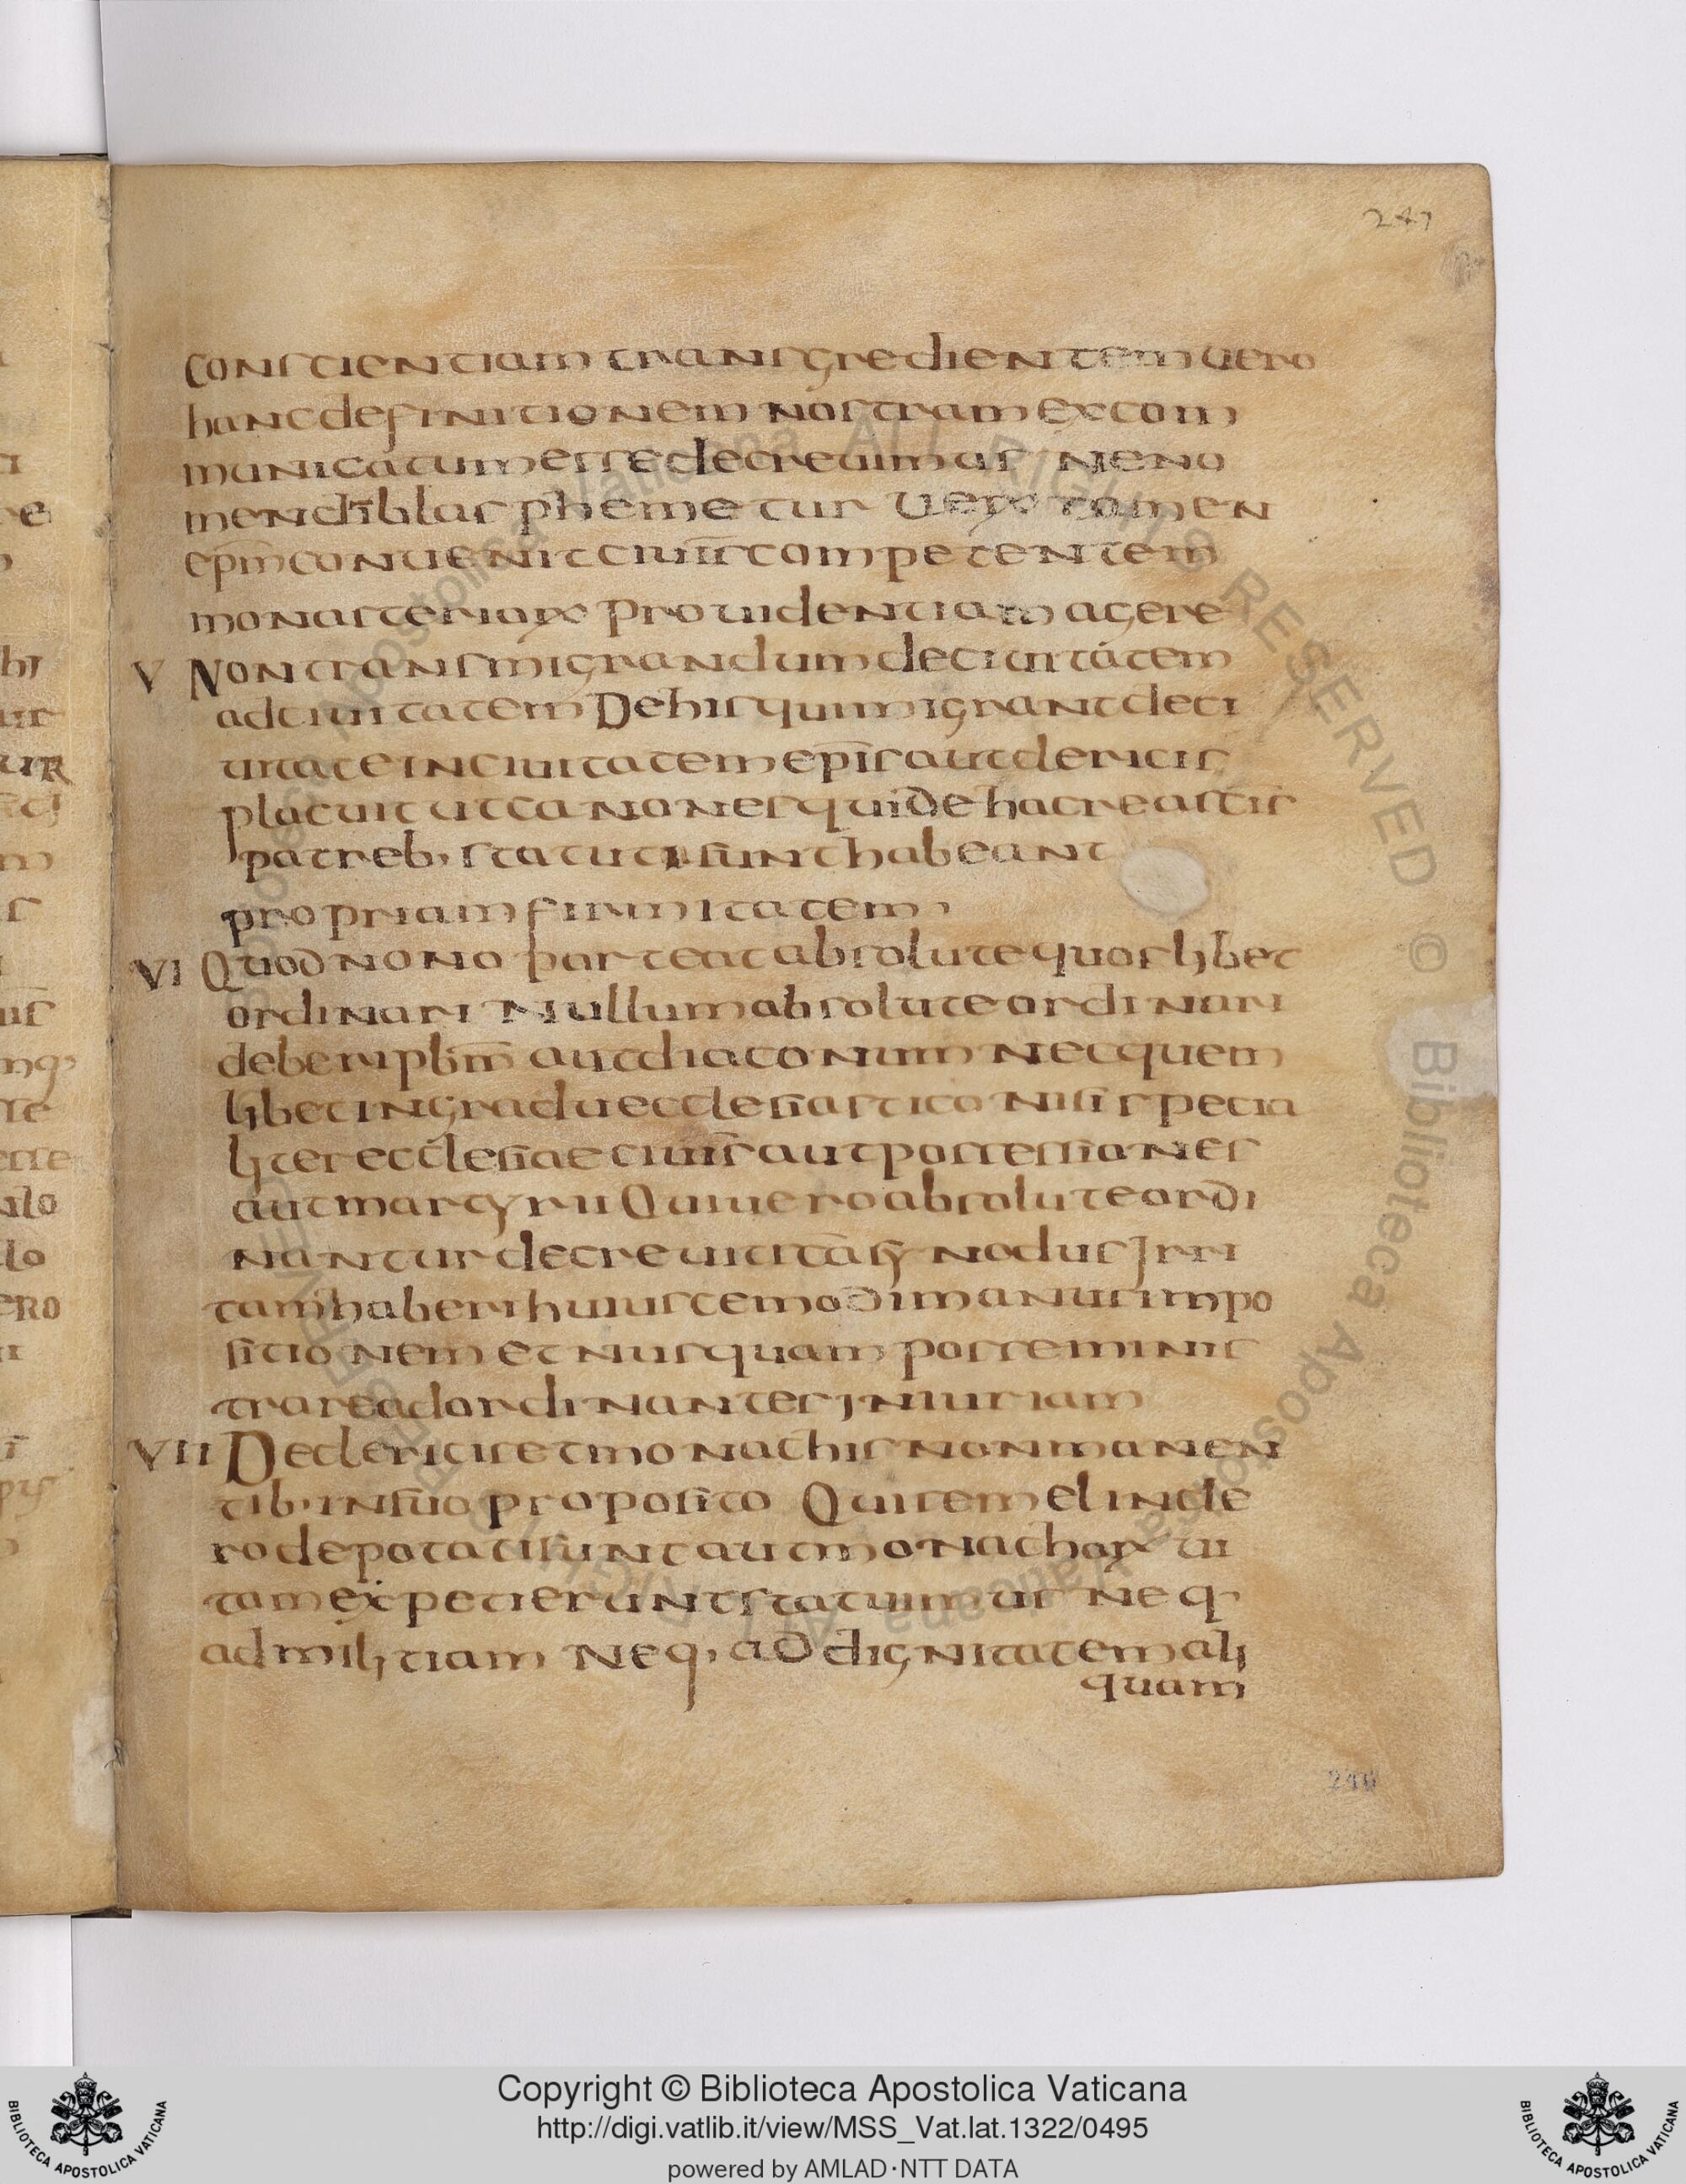 247
conscientiam transgredientem uero
hanc definitionem nostram excom
municatum esse decreuimus ne no
men dī blasphemetur Uerū tamen
epm̄ conuenit ciuit̄ competentem
monasteriorū prouidentiam agere
V Non transmigrandum de ciuitatem
ad ciuitatem De his qui migrant de ci
uitate in ciuitatem epīs aut clericis
placuit ut canones qui de hac re a sc̄is
patrebs statuti sunt habeant
propriam firmitatem
VI Quod non oporteat absolute quoslibet
ordinari Nullum absolute ordinari
deberi prbm̄ aut diaconum nec quem
libet in gradu ecclesiastico nisi specia
liter ecclesiae ciuit̄s aut possessiones
aut martyrii Qui uero absolute ordi
nantur decreuit ita s̄ synodus Irri
tam haberi huiuscemodi manus impo
sitionem et nusquam posse minis
trare ad ordinantes iniuriam
VII De clericis et monachis non manen
tib, in suo proposito Qui semel in cle
ro depotati sunt aut monachorū ui
tam expetierunt statuimus neq,
ad militiam neq, ad dignitatem ali
quam
240
Copyright © Biblioteca Apostolica Vaticana
http://digi.vatlib.it/view/MSS_Vat.lat.1322/0495
powered by AMLAD·NTT DATA
BIBLIOTECA APOSTOLICA VATICANA
BIBLIOTECA APOSTOLICA VATICANA